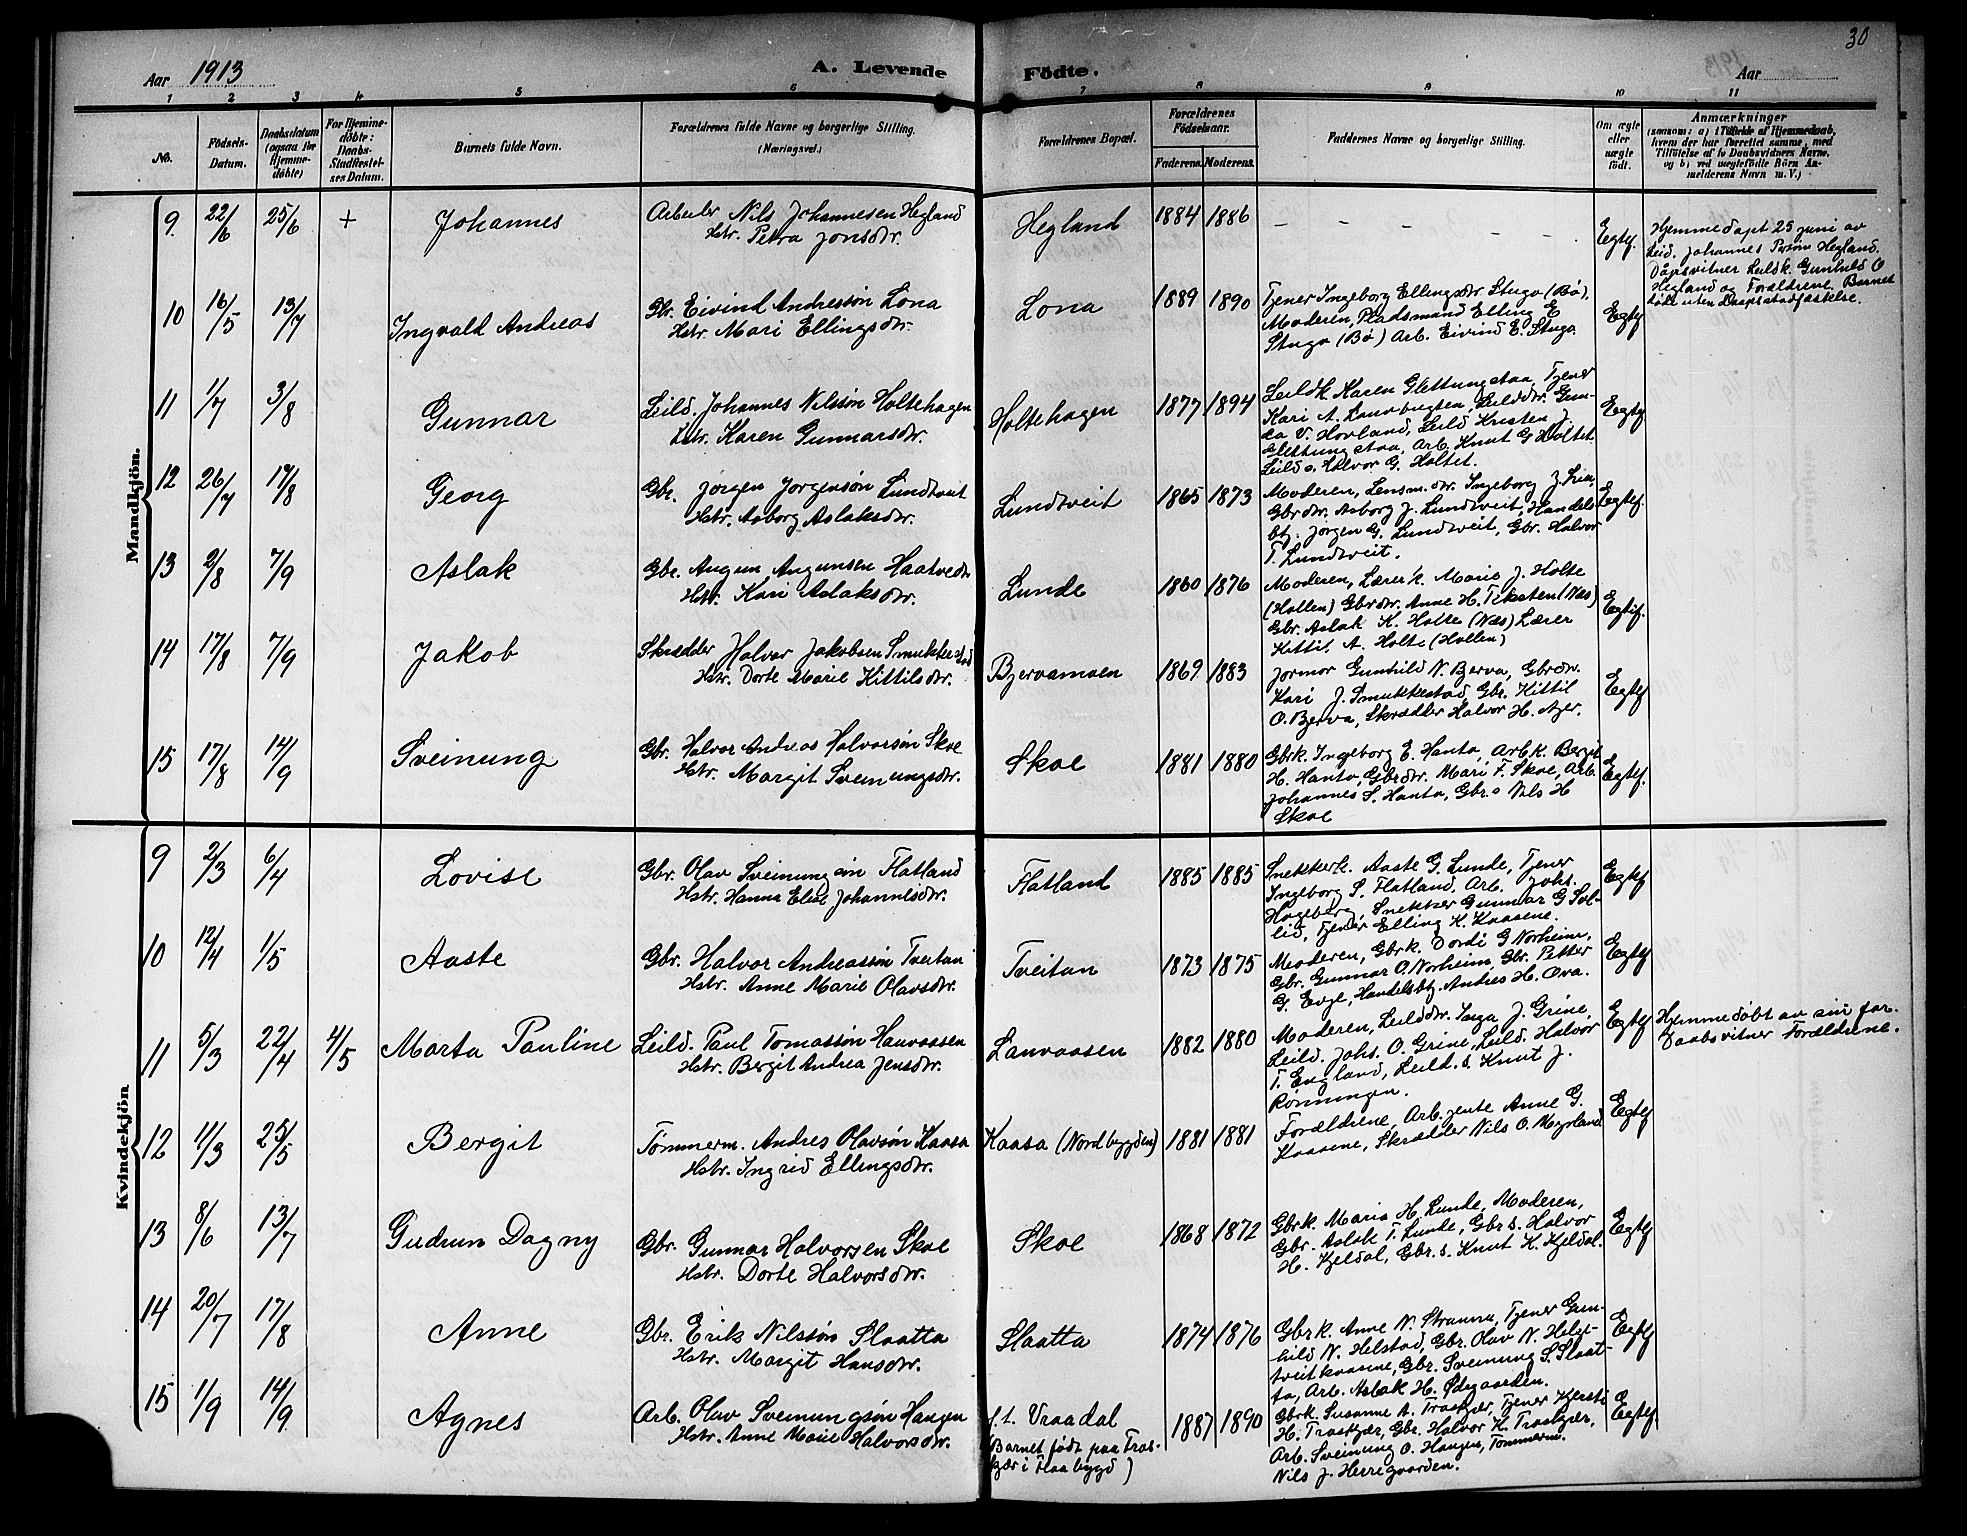 30
Aar 1913
A. Levende
Födte.
Aar
1 2 3 4 5 6 7 8 9 10 11
No.
Födsels-
Datum.
Daabsdatum
(ogsaa for
Hjemme-
döbte)
For Hjemme-
döbte:
Daabs-
Stadfæstel-
ses Datum.
Barnets fulde Navn.
Forældrenes fulde Navne og borgerlige Stilling.
(Næringsvei.)
Forældrenes Bopæl.
Forældrenes
Födselsaar.
Faderens. Moderens.
Faddernes Navne og borgerlige Stilling.
Om ægte
eller
uægte
födt.
Anmærkninger
(saasom: a) i Tilfælde af Hjemmedaab,
hvem der har forrettet samme, med
Tilföielse af to Daabsvidners Navne,
og b) ved uægtefödte Börn An-
melderens Navn m. V.)
Mandkjön.
9. 22/6 25/6 + Johannes
Arbeider Nils Johannesen Hegland
Hstr. Petra Jonsdtr.
Hegland 1884 1886 - - - - - Egtef.
Hjemmedøpt 25 juni av
Leid. Johannes Hegland.
Dåpsvitner Leildk. Gunhild O
Hegland og Forældrene. Barnet
døde uten Daapsstadfæstelse.
10 16/5 13/7 Ingvald Andreas
Gbr. Eivind Andressøn Lona
Hstr. Mari Ellingsdtr.
Lona 1889 1890
Tjener Ingeborg Ellingsdtr. Stugo (Bø),
Moderen, Pladsmand Elling E
Stugo (Bø) Arb. Eivind E. Stugo.
Egtef
11 1/7 3/8 Gunnar
Leild. Johannes Nilssøn Holtehagen
Hstr. Karen Gunnarsdtr.
Holtehagen 1877 1894
Leildk Karen Glettungstaa, Tjener
Kari A. Lanvbugten, Leilddtr. Gun-
da V. Hovland, Leild Kristen J.
Glettungstaa, Arb. Knut G Holtet.
Leilds. Halvor G. Holtet.
Egtef
12 26/7 17/8 Georg
Gbr. Jørgen Jørgensøn Lundtveit
Hstr. Asborg Aslaksdtr.
Lundtveit 1865 1873
Moderen, Lensm.dtr. Ingeborg J. Lien,
Gbrdtr. Asborg J. Lundtveit, Handels-
btj. Jørgen G. Lundtveit, Gbr. Halvor
T. Lundtveit.
Egtef.
13 2/8 7/9 Aslak
Gbr. Augun Augunsen Haatvedt
Hstr. Kari Aslaksdtr.
Lunde 1860 1876
Moderen, Lærerk. Marie J. Holte
(Hollen) Gbrdtr. Anne H. Teksten (Næs)
Gbr. Aslak K. Holte (Næs) Lærer
Kittil A. Holte (Hollen)
Egtef.
14 17/8 7/9 Jakob
Skrædder Halvor Jakobsen Smukkestad
Hstr. Dorte Marie Kittilsdtr.
Bjervamoen 1869 1883
Jormor Gunhild N. Bjerva, Gbrdtr.
Kari J. Smukkestad, Gbr. Kittil
O. Bjerva, Skrædder Halvor H. Ajer.
Egtef
15 17/8 14/9 Sveinung
Gbr. Halvor Andreas Halvorsøn Skoe
Hstr. Margit Sveinungsdtr.
Skoe 1881 1880
Gbrk. Ingeborg E. Hanto, Arb.k. Bergit
H. Hanto, Gbrdtr. Mari F. Skoe, Arb.
Johannes S. Hanto, Gbr.s Nils H
Skoe
Egtef.
Kvindekjön
9 2/3 6/4 Lovise
Gbr. Olav Sveinungsøn Flatland
Hstr. Hanna Elise Johannesdtr.
Flatland 1885 1885
Snekkerk. Aaste G. Lunde, Tjener
Ingeborg S. Flatland, Arb. Johs.
Hogeberg, Snekker Gunnar G Sol-
lid, Tjener Elling K. Kaasene.
Egtef
10 12/4 1/5 Aaste
Gbr. Halvor Andreassøn Tveitan
Hstr. Anne Marie Olavsdtr.
Tveitan 1873 1875
Moderen, Gbrk. Dordi G Norheim,
Gbr. Gunnar O. Norheim, Gbr. Petter
G. Evje, Handelsbtj. Andres H. Øva.
Egtef
11 5/3 22/4 4/5 Marta Pauline
Leild. Paul Tomassøn Lanvaasen
Hstr. Bergit Andrea Jensdtr.
Lanvaasen 1882 1880
Moderen, Leilddtr. Inga J. Grine,
Leild. Johs. O. Grine, Leild. Halvor
T. England, Leild. s. Knut J.
Rønningen.
Egtef
Hjemmedøbt av sin far.
Daabsvitner Forældrene.
12 11/3 25/5 Bergit
Tømmerm. Andres Olavsøn Kaasa
Hstr. Ingrid Ellingsdtr.
Kaasa (Nordbygden) 1881 1881
Forældrene, Arb.jente Anne G.
Kaasene, Skrædder Nils O. Mygland
Egtef
13 8/6 13/7 Gudrun Dagny
Gbr. Gunnar Halvorsen Skoe
Hstr. Dorte Halvorsdtr.
Skoe 1868 1872
Gbrk. Maria H. Lunde, Moderen,
Gbr. Aslak T. Lunde, Gbrs. Halvor
H. Kjeldal, Gbr.s. Knut K. Kjeldal.
Egtef
14 20/7 17/8 Anne
Gbr. Erik Nilssøn Slaatta
Hstr. Margit Hansdtr.
Slaatta 1874 1876
Gbrk. Anne N. Stranna, Tjener Gun-
hild N. Helstad, Gbr. Olav N. Helge-
tveitkaasene, Gbr. Sveinung S. Slaat-
ta, Arb. Aslak H. Ødegaarden.
Egtef
15 1/9 14/9 Agnes
Arb. Olav Sveinungsøn Haugen
Hstr. Anne Marie Halvorsdtr.
f.t. Vraadal
(Barnet født paa Tras-
kjær i Flaabygd)
1887 1890
Gbrk. Susanne A. Traskjær, Tjener Kjersti
H. Traskjær, Gbr. Halvor K. Traskjær,
Arb. Sveinung O. Haugen, Tømmerm.
Nils J. Herregaarden.
Egtef.